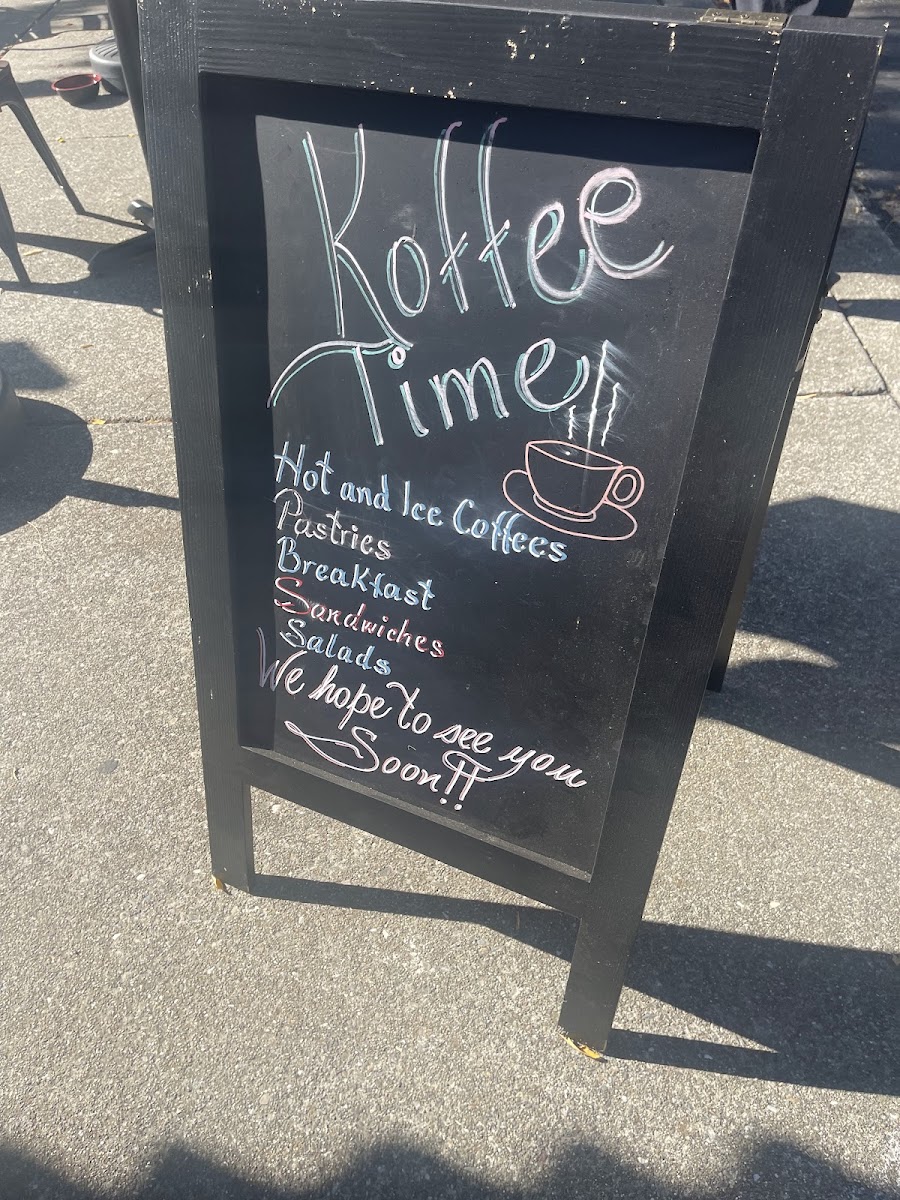 Koffee
Time
Hot and Ice Coffees
Pastries
Breakfast
Sandwiches
Salads
We hope to see you
Soon!!